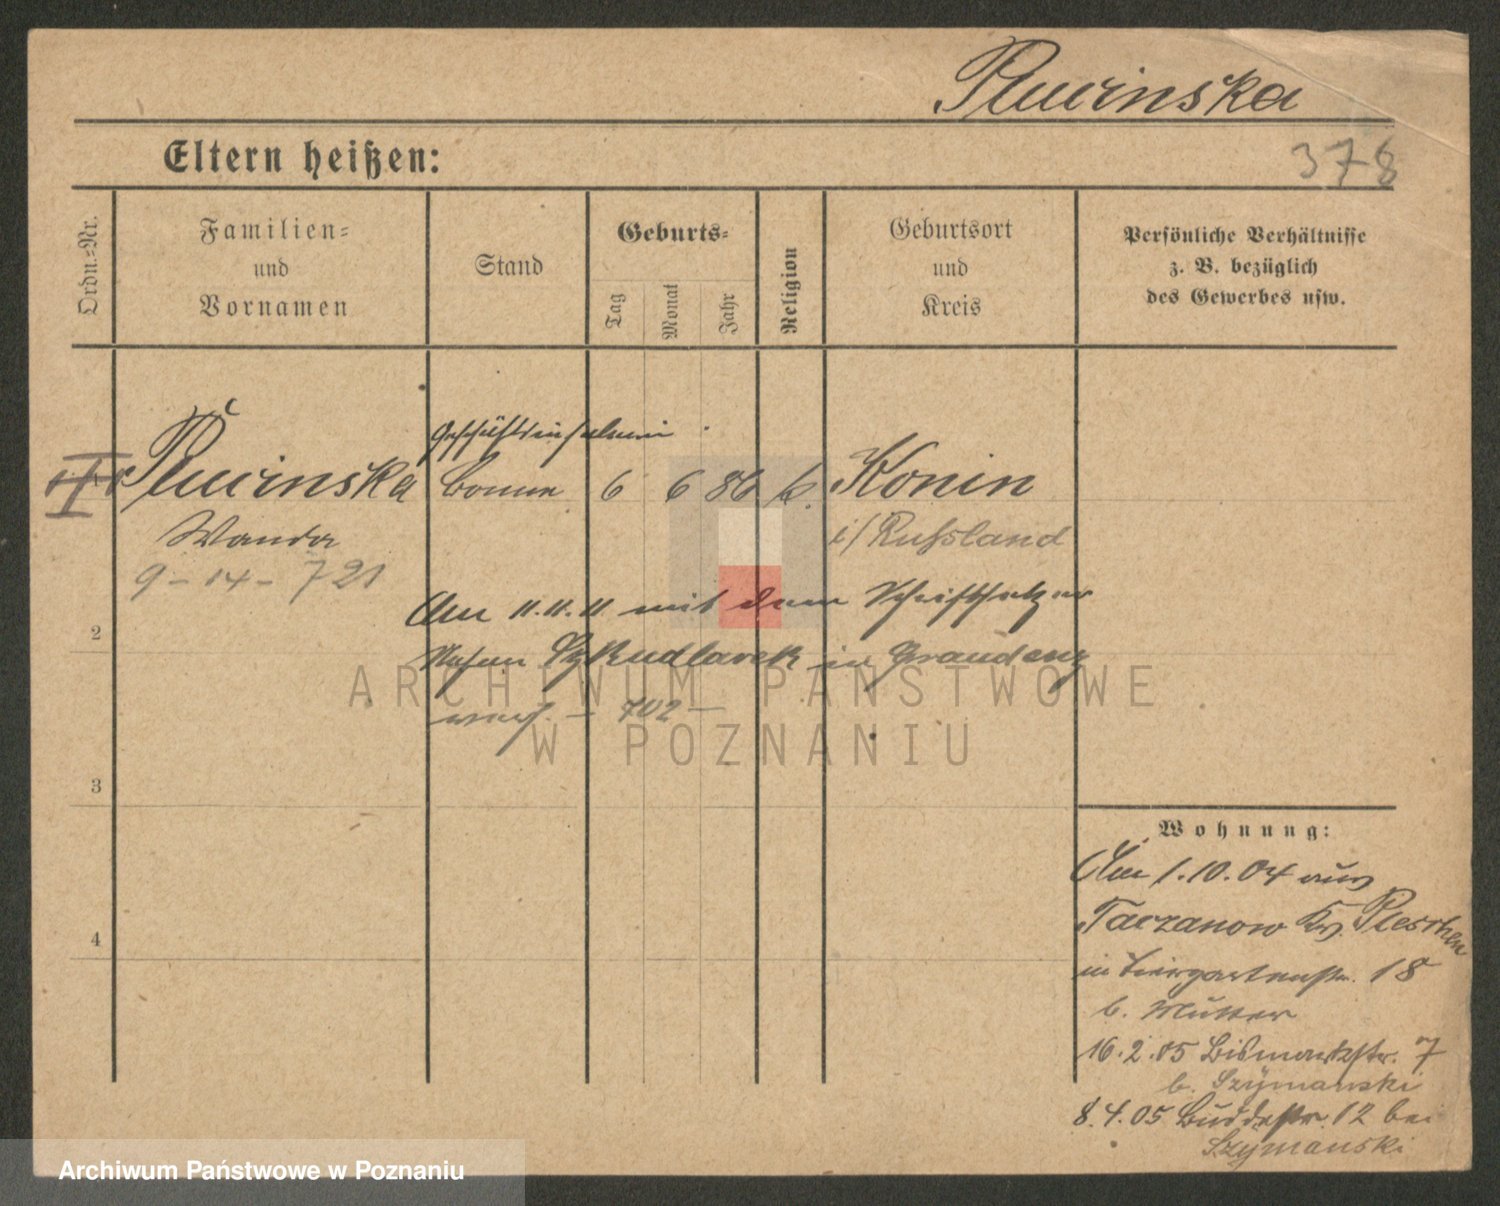 Plucinska
Eltern heißen:
378
Ordn.-Nr.
Familien-
und
Vornamen
Stand
Geburts-
Tag
Monat
Jahr
Religion
Geburtsort
und
Kreis
Persönliche Verhältnisse
z. B. bezüglich
des Gewerbes usw.
Plucinska
6 6 86 k.
Konin
Wanda
i/Russland
9-14-721
Am 11.11.11 mit dem Schriftsetzer
2
Szkudlarek in Graudenz
- 702 -
ARCHIWUM PAŃSTWOWE
W POZNANIU
3
4
Wohnung:
Am 1.10.04 aus
Taczanow Kr. Pleschen
in Tiergartenstr. 18
b. Mutter
16.2.05 Bismarckstr. 7
b. Szymanski
8.4.05 Buddestr. 12 bei
Szymanski
Archiwum Państwowe w Poznaniu